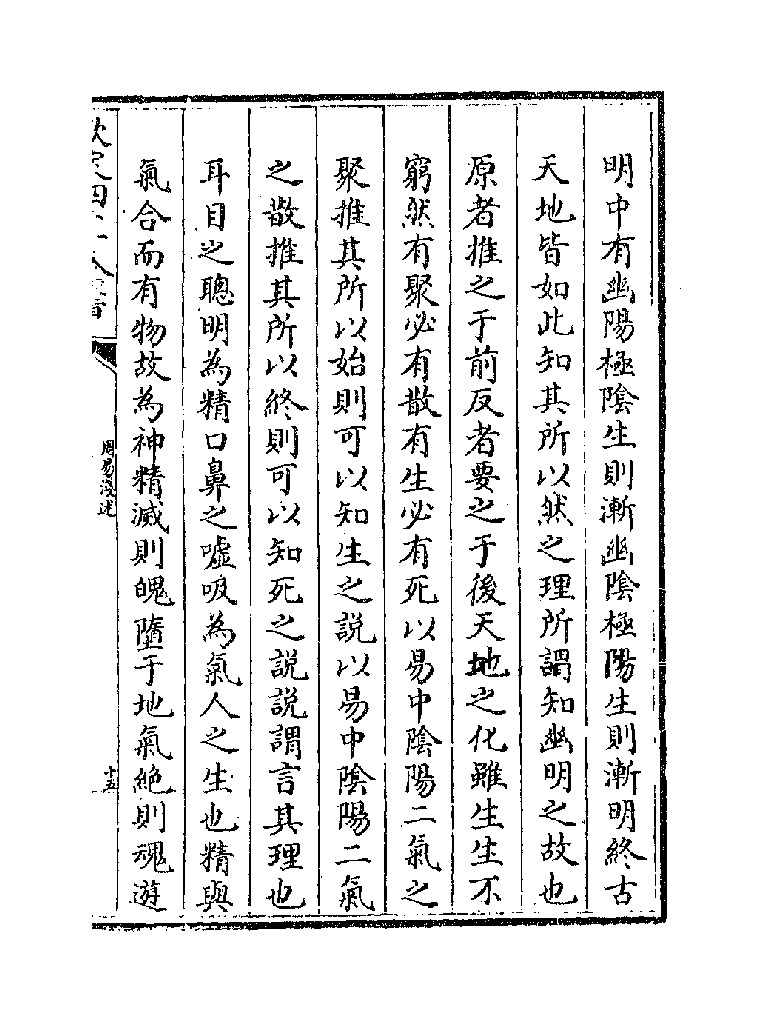 明中有幽陽極隂生則漸幽隂極陽生則漸明終古
天地皆如此知其所以然之理所謂知幽明之故也
原者推之于前反者要之于後天地之化雖生生不
窮然有聚必有散有生必有死以易中隂陽二氣之
聚推其所以始則可以知生之説以易中隂陽二氣
之散推其所以終則可以知死之説説謂言其理也
耳目之聰明為精口鼻之噓吸為氣人之生也精與
氣合而有物故為神精滅則魄墮于地氣絶則魂遊
周易淺述
十五